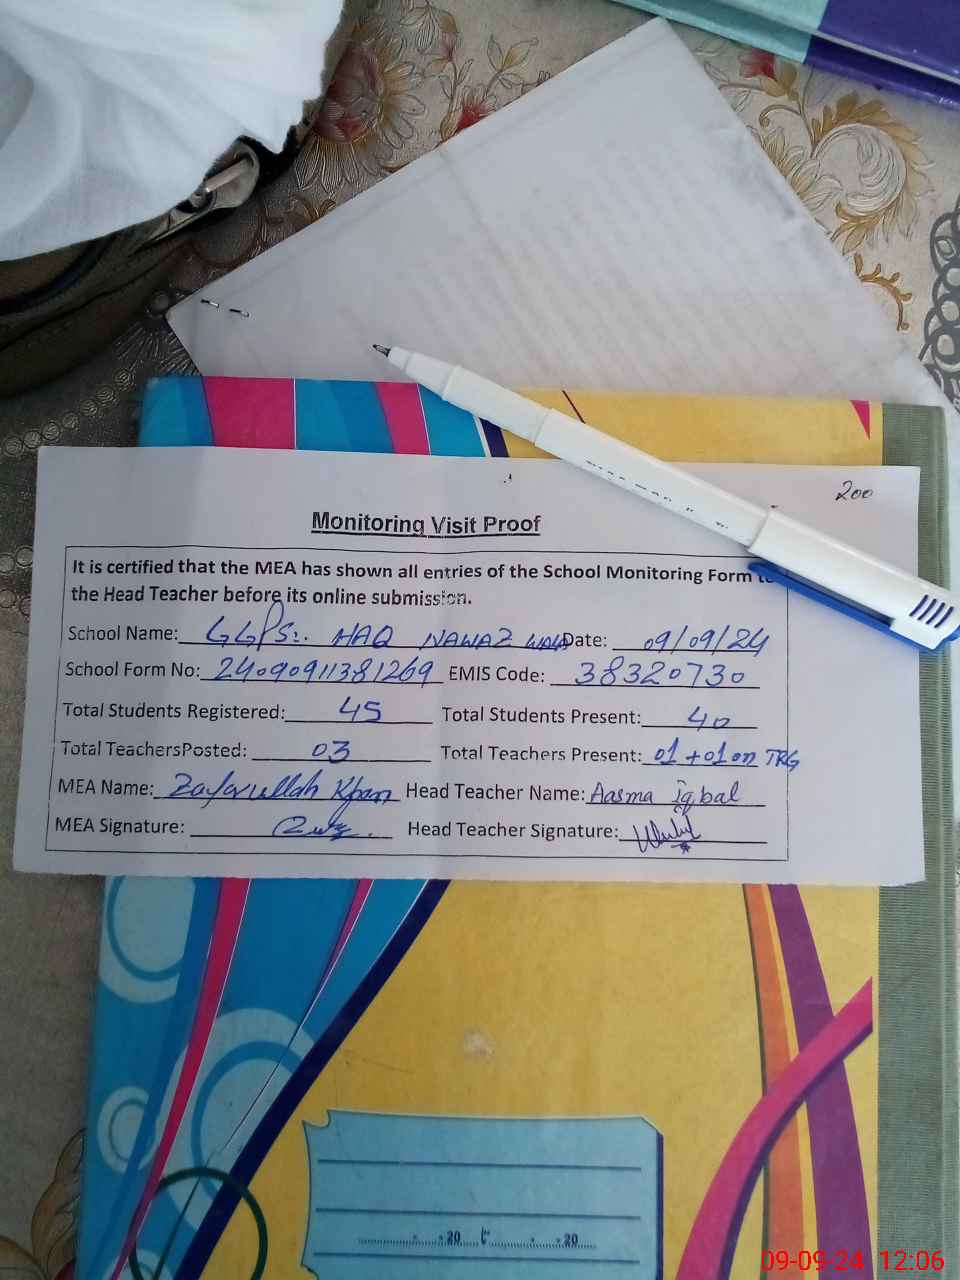 200
Monitoring Visit Proof
It is certified that the MEA has shown all entries of the School Monitoring Form
the Head Teacher before its online submission.
School Name: GGPS:. HAQ NAWAZ WALA Date: 09/09/24
School Form No: 24090911381269 EMIS Code: 38320730
Total Students Registered: 45 Total Students Present: 40
Total TeachersPosted: 03 Total Teachers Present: 01 + 01 on TRG
MEA Name: Zafarullah Khan Head Teacher Name: Aasma iqbal
MEA Signature: Head Teacher Signature:
20 20
09-09-24 12:06